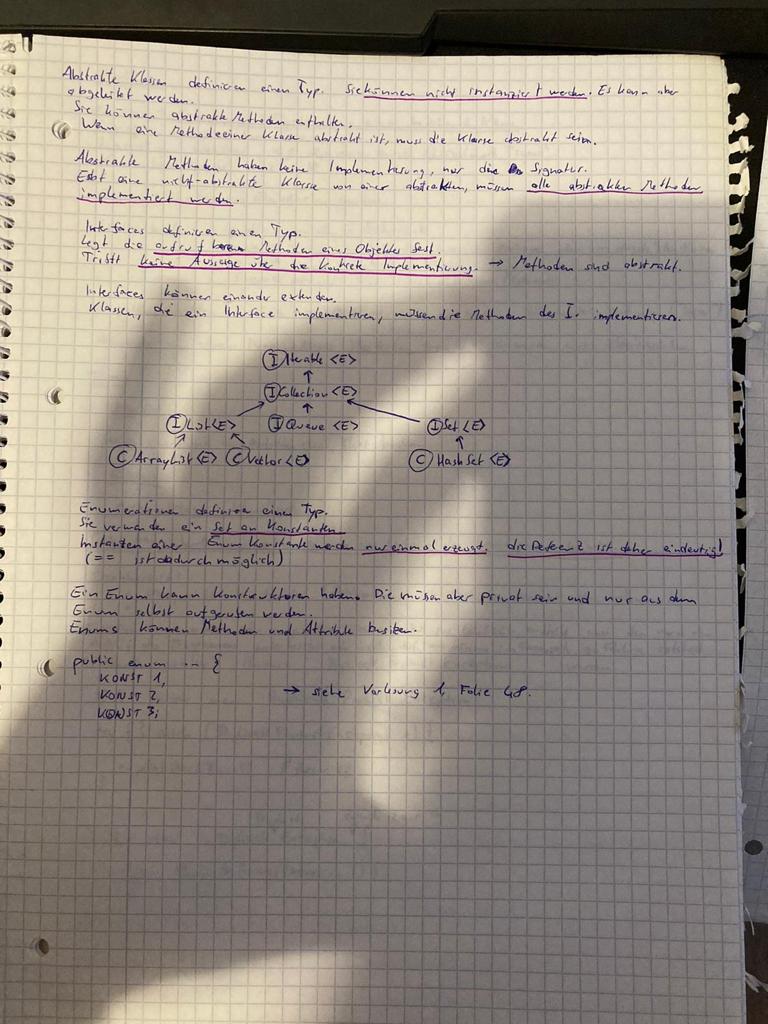 Abstrakte Klassen definieren einen Typ. Sie können nicht instanziiert werden. Es kann aber
abgeleitet werden.
Sie können abstrakte Methoden enthalten.
Wenn eine Methode einer Klasse abstrakt ist, muss die Klasse abstrakt seien.
Abstrakte Methoden haben keine Implementierung, nur die Signatur.
Erbt eine nicht-abstrakte Klasse von einer abstrakten, müssen alle abstrakten Methoden
implementiert werden.
Interfaces definieren einen Typ.
Legt die aufrufbaren Methoden eines Objektes fest.
Trifft keine Aussage über die konkrete Implementierung. → Methoden sind abstrakt.
Interfaces können einander extenden.
Klassen, die ein Interface implementieren, müssen die Methoden des I. implementieren.
I Iterable <E>
I Collection <E>
I List<E> I Queue <E> I Set <E>
C ArrayList <E> C Vector <E> C HashSet <E>
Enumerationen definieren einen Typ.
Sie verwenden ein Set an Konstanten
Instanzen einer Enum Konstante werden nur einmal erzeugt, die Referenz ist daher eindeutig!
(== ist dadurch möglich)
Ein Enum kann Konstruktoren haben. Die müssen aber privat sein und nur aus dem
Enum selbst aufgerufen werden.
Enums können Methoden und Attribute besitzen.
public enum ... {
KONST 1,
KONST 2, → siehe Vorlesung 1, Folie 48.
KONST 3;